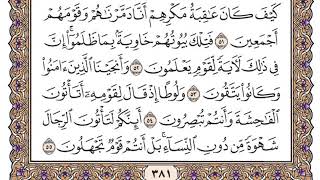 كَيْفَ كَانَ عَٰقِبَةُ مَكْرِهِمْ أَنَّا دَمَّرْنَٰهُمْ وَقَوْمَهُمْ
أَجْمَعِينَ ٥١ فَتِلْكَ بُيُوتُهُمْ خَاوِيَةًۢ بِمَا ظَلَمُوٓا۟ إِنَّ
فِى ذَٰلِكَ لَءَايَةً لِّقَوْمٍ يَعْلَمُونَ ٥٢ وَأَنجَيْنَا ٱلَّذِينَ ءَامَنُوا۟
وَكَانُوا۟ يَتَّقُونَ ٥٣ وَلُوطًا إِذْ قَالَ لِقَوْمِهِۦٓ أَتَأْتُونَ
ٱلْفَٰحِشَةَ وَأَنتُمْ تُبْصِرُونَ ٥٤ أَئِنَّكُمْ لَتَأْتُونَ ٱلرِّجَالَ
شَهْوَةً مِّن دُونِ ٱلنِّسَآءِ ۚ بَلْ أَنتُمْ قَوْمٌ تَجْهَلُونَ ٥٥
٣٨١